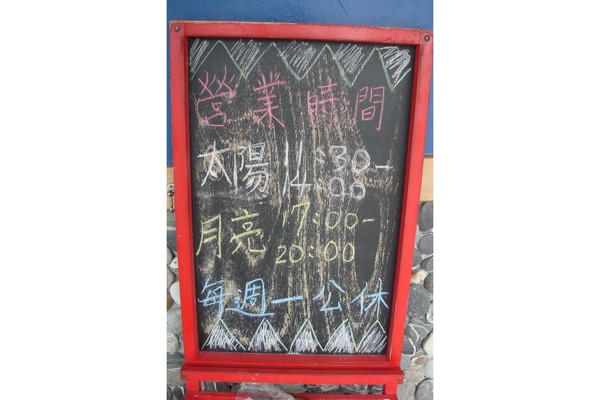 營業時間
太陽 11:30-
14:00
月亮 17:00-
20:00
每週一公休